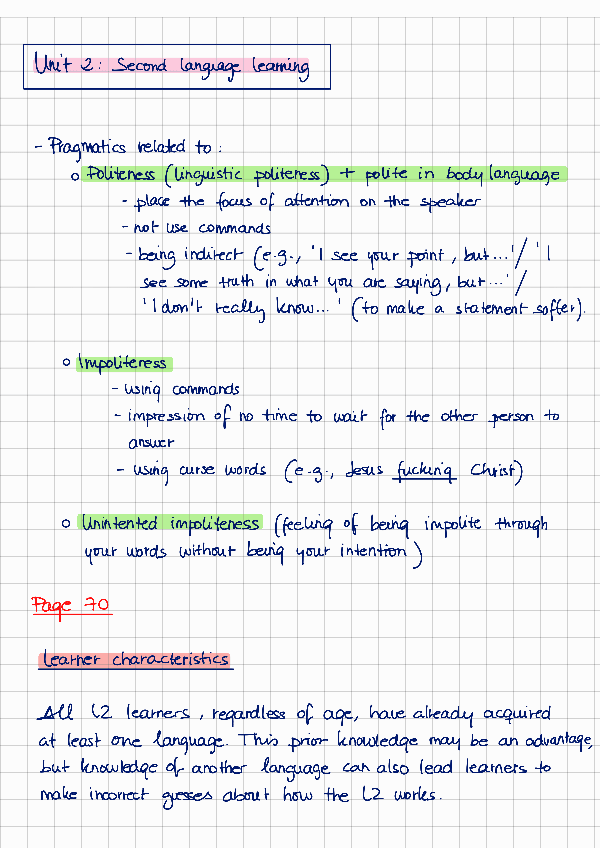 Unit 2: Second language learning
- Pragmatics related to:
o Politeness (linguistic politeness) + polite in body language
- place the focus of attention on the speaker
- not use commands
- being indirect (e.g., 'I see your point, but...'/ 'I
see some truth in what you are saying, but...'/
'I don't really know...' (to make a statement softer).
o Impoliteness
- using commands
- impression of no time to wait for the other person to
answer
- using curse words (e.g., Jesus fucking Christ)
o Unintented impoliteness (feeling of being impolite through
your words without being your intention)
Page 70
Learner characteristics
All L2 learners, regardless of age, have already acquired
at least one language. This prior knowledge may be an advantage,
but knowledge of another language can also lead learners to
make incorrect guesses about how the L2 works.